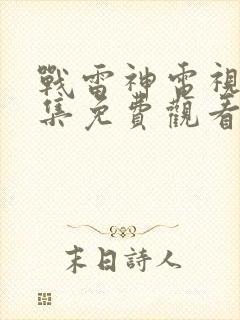 戰雷神電視
集免費觀看
末日詩人